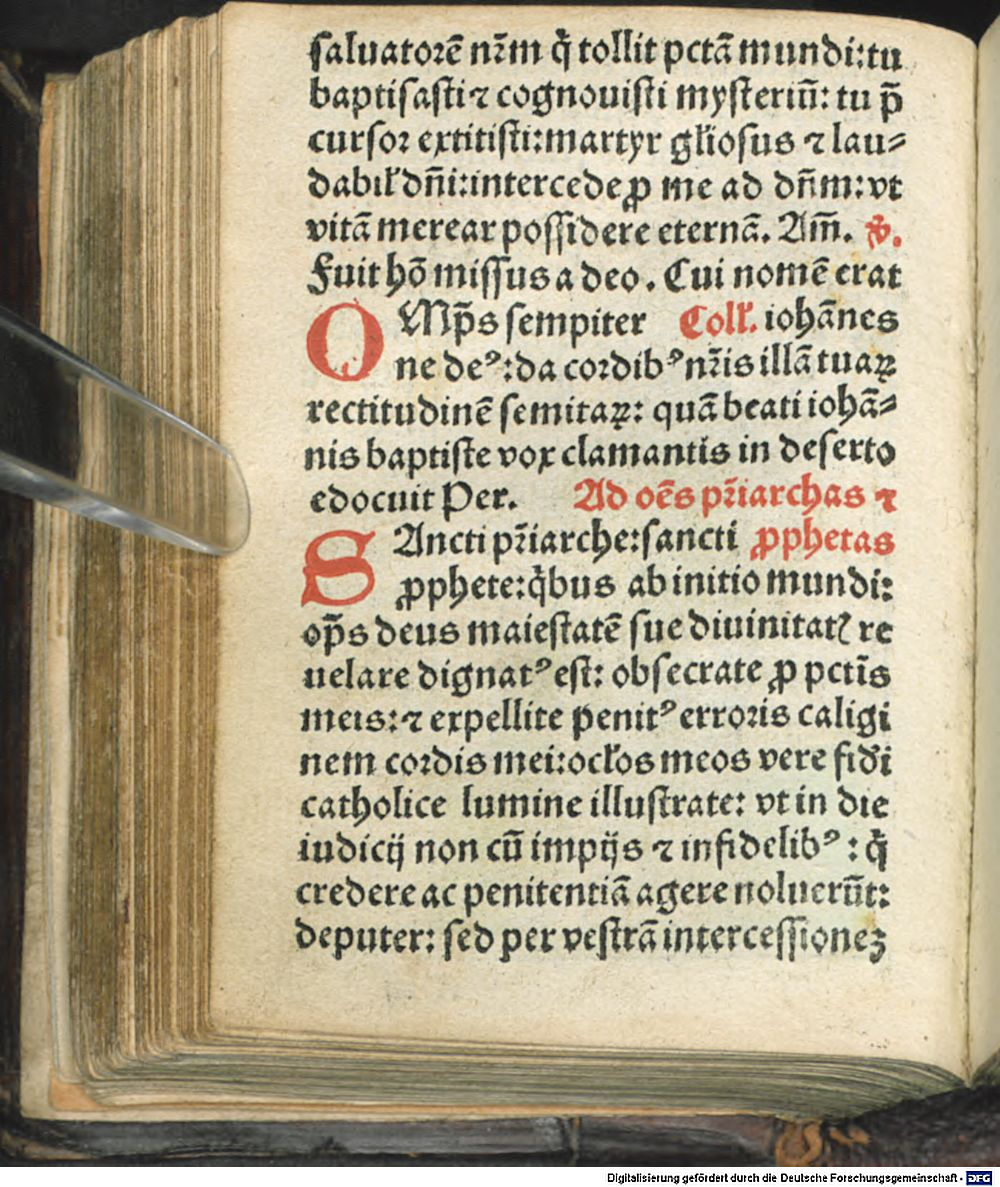 saluatorē nr̄m q̄ tollit pctā mundi: tu
baptisasti ⁊ cognouisti mysteriū: tu p̄
cursor extitisti: martyr gl̄iosus ⁊ lau-
dabil̄ dn̄i: intercede ꝓ me ad dn̄m: vt
vitā merear possidere eternā. Am̄. ℣.
Fuit hō missus a deo. Cui nomē erat
OMp̄s sempiter Coll̄. iohānes
ne deꝰ: da cordibꝰ nr̄is illā tuaꝝ
rectitudinē semitaꝝ: quā beati iohā-
nis baptiste vox clamantis in deserto
edocuit Per. Ad oēs pr̄iarchas ⁊
SAncti pr̄iarche: sancti ꝓphetas
ꝓphete: q̄bus ab initio mundi:
op̄s deus maiestatē sue diuinitatꝭ re
uelare dignatꝰ est: obsecrate ꝓ pctīs
meis: ⁊ expellite penitꝰ erroris caligi
nem cordis mei: ocl̄os meos vere fid̄i
catholice lumine illustrate: vt in die
iudicij non cū impijs ⁊ infidelibꝰ: q̄
credere ac penitentiā agere noluerūt:
deputer: sed per vestrā intercessioneꝫ
Digitalisierung gefördert durch die Deutsche Forschungsgemeinschaft - DFG